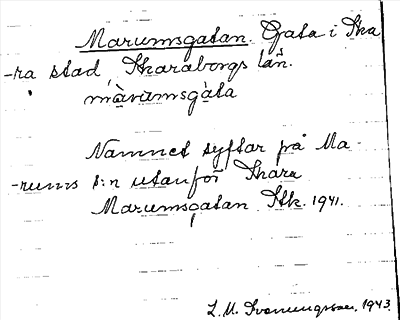 Marumsgatan. Gata i Ska
-ra stad, Skaraborgs län.
màrumsgàta
Namnet syftar på Ma-
-rums s:n utanför Skara
Marumsgatan Stk. 1941.
L. M. Svenungsson, 1943